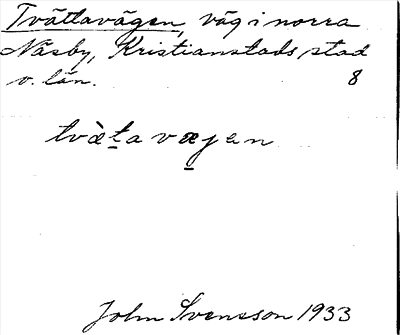 Tvättavägen, väg i norra
Näsby, Kristianstads stad
o. län. 8
tvæ̀ṯa væ̱jen
John Svensson 1933